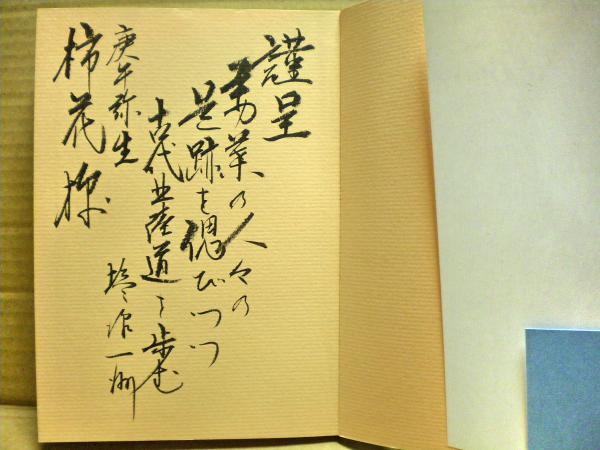 謹呈
葉の人々の
足跡を偲びつつ
古代道を歩む
庚午弥生
一
柿花様